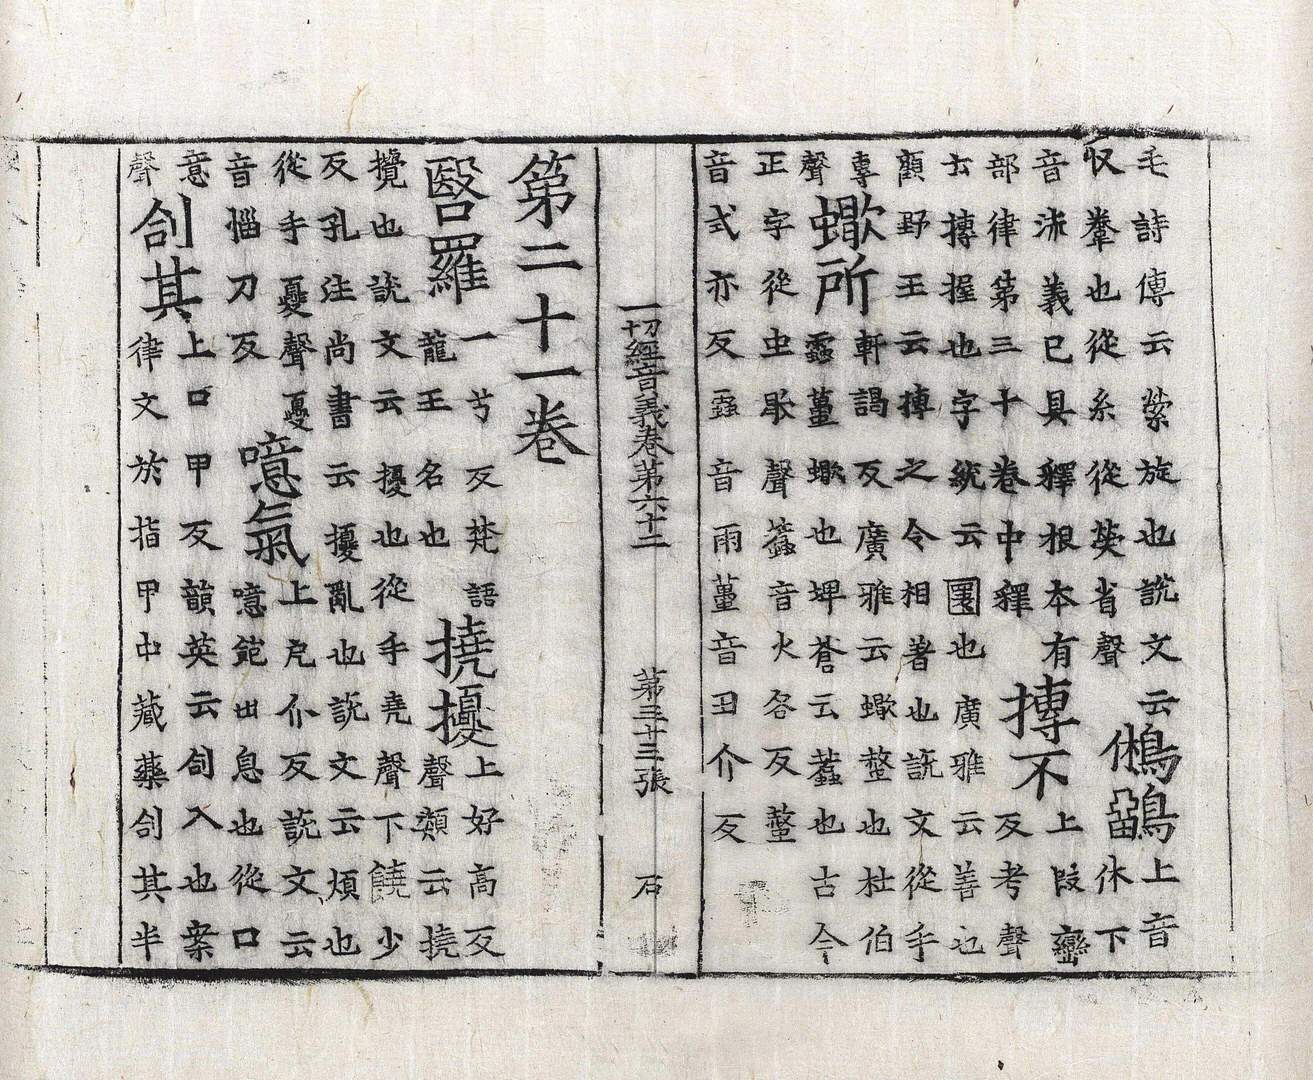 毛詩傳云縈旋也說文云
収鞶也從糸從熒省聲
鵂鶹
上音
休下
音流義已具釋根本有
部律第三十卷中釋
摶不
上段巒
反考聲
云摶握也字統云團也廣雅云善也
顧野王云摶之令相著也說文從手
專
聲
蠍所
軒謁反廣雅云蠍螫也杜伯
蠆蠍也埤蒼云蠚也古今
正字從虫歇聲蠚音火各反螫
音式亦反音雨蠆音丑介反
一切經音義卷第六十二
第三十三張
石
第二十一卷
醫羅
一兮反梵語
龍王名也
撓擾
上好高反
聲類云撓
攪也說文云擾也從手堯聲下饒少
反孔注尚書云擾亂也說文云煩也
從手憂聲憂
音惱刀反
噫氣
上厄介反說文云
噫飽出息也從口
意
聲
㓣其
上口甲反韻英云㓣入也案
律文於指甲中藏藥㓣其半